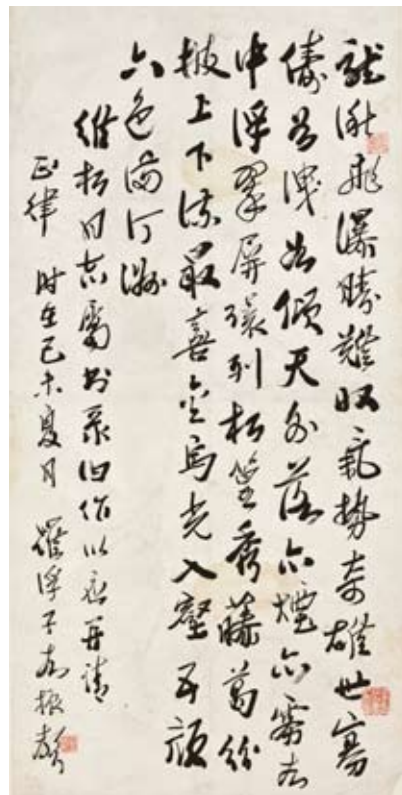 龍湫飛瀑勝難收氣勢奇雄世寡
儔若洩如傾天外落亦煙亦霧
中浮翠屏環列松篁秀藤葛紛
披上下流最喜金烏光入壑五顏
六色滿汀洲
維松同志屬書录旧作以應并請
正律 時在己未夏月 羅浮子 振